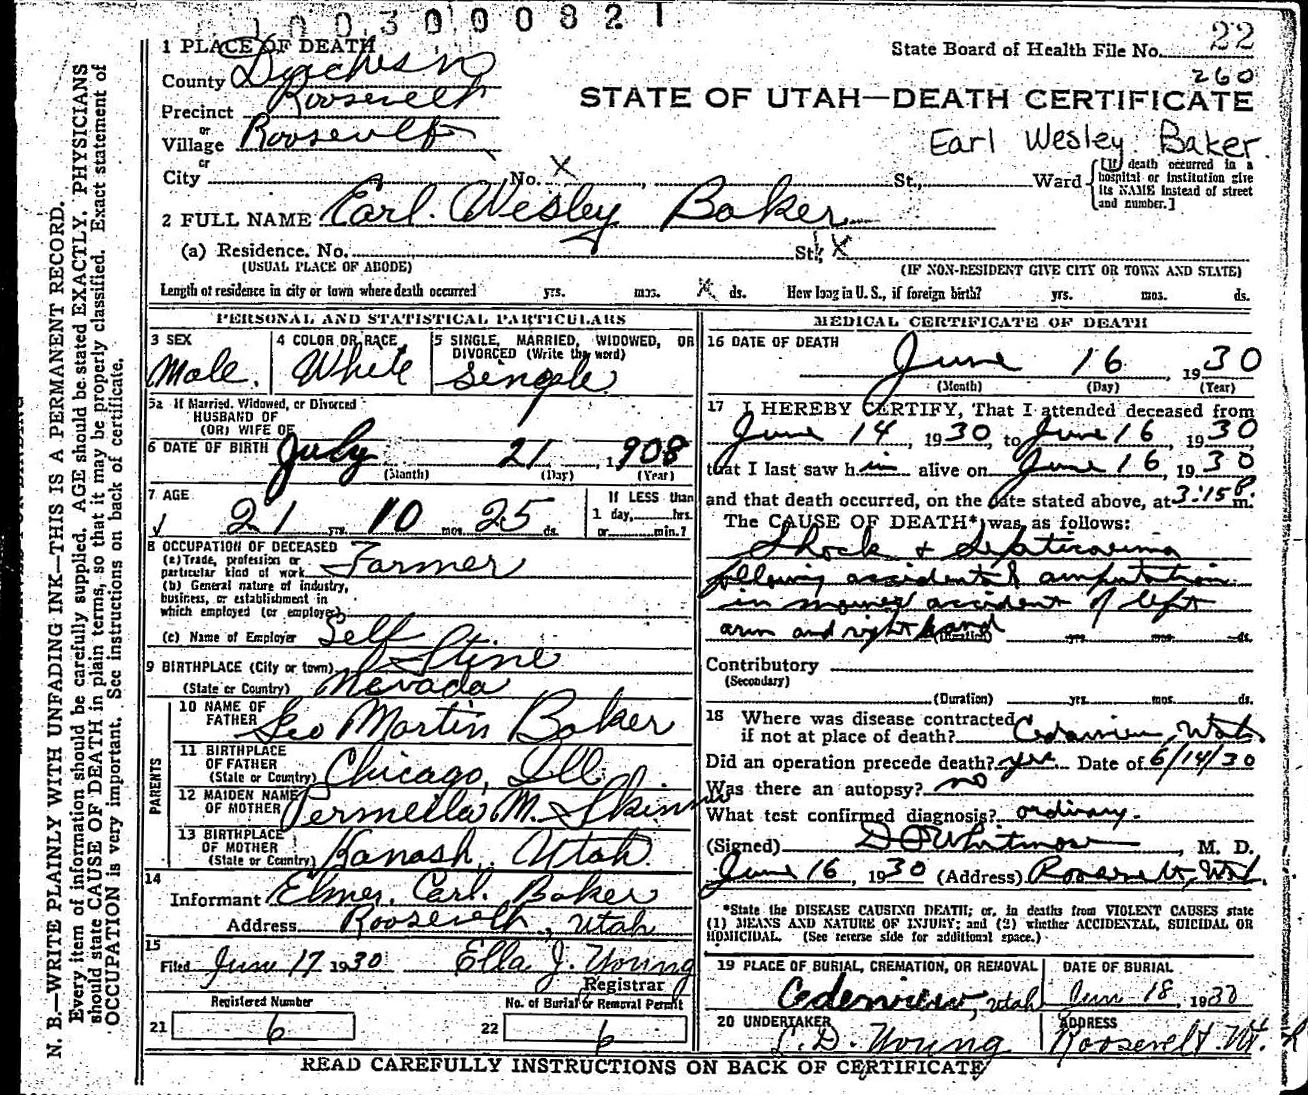 1003000821
22
State Board of Health File No.
260
1 PLACE OF DEATH
County Duchesn
STATE OF UTAH—DEATH CERTIFICATE
Precinct Roosevelt
or
Village Roosevelt
Earl Wesley Baker
or
City No. X , St., Ward
[If death occurred in a hospital or institution give its NAME instead of street and number.]
2 FULL NAME Earl. Wesley Baker
(a) Residence. No. St. X
(USUAL PLACE OF ABODE) (IF NON-RESIDENT GIVE CITY OR TOWN AND STATE)
Length of residence in city or town where death occurred yrs. mos. X ds. How long in U. S., if foreign birth? yrs. mos. ds.
PERSONAL AND STATISTICAL PARTICULARS
3 SEX
Male.
4 COLOR OR RACE
White
5 SINGLE, MARRIED, WIDOWED, OR
DIVORCED (Write the word)
single
5a If Married, Widowed, or Divorced
HUSBAND OF
(OR) WIFE OF
6 DATE OF BIRTH July 21, 1908
(Month) (Day) (Year)
7 AGE
21 yrs. 10 mos. 25 ds.
If LESS than
1 day, hrs.
or min.?
8 OCCUPATION OF DECEASED
(a) Trade, profession or
particular kind of work Farmer
(b) General nature of industry,
business, or establishment in
which employed (or employer)
(c) Name of Employer Self
9 BIRTHPLACE (City or town) Stine
(State or Country) Nevada
PARENTS
10 NAME OF
FATHER Geo Martin Baker
11 BIRTHPLACE
OF FATHER
(State or Country) Chicago, Ill
12 MAIDEN NAME
OF MOTHER Permeila M. Skinner
13 BIRTHPLACE
OF MOTHER
(State or Country) Kanosh, Utah.
14
Informant Elmer. Carl. Baker
Address Roosevelt, Utah
15
Filed June 17 1930 Ella J. Young
Registrar
Registered Number No. of Burial or Removal Permit
21 6 22 6
MEDICAL CERTIFICATE OF DEATH
16 DATE OF DEATH
June 16, 1930
(Month) (Day) (Year)
17 I HEREBY CERTIFY, That I attended deceased from
June 14, 1930, to June 16 1930
that I last saw him alive on June 16, 1930
and that death occurred, on the date stated above, at 3:15 P. m.
The CAUSE OF DEATH* was as follows:
Shock & Septicaemia
following accidental amputation
in mower accident of left
arm and right hand
(Duration) yrs. mos. ds.
Contributory
(Secondary)
(Duration) yrs. mos. ds.
18 Where was disease contracted
if not at place of death? Cedarview, Utah
Did an operation precede death? yes Date of 6/14/30
Was there an autopsy? no
What test confirmed diagnosis? ordinary.
(Signed) D O Whitmore, M. D.
June 16, 1930 (Address) Roosevelt, Utah.
*State the DISEASE CAUSING DEATH; or, in deaths from VIOLENT CAUSES state
(1) MEANS AND NATURE OF INJURY; and (2) whether ACCIDENTAL, SUICIDAL OR
HOMICIDAL. (See reverse side for additional space.)
19 PLACE OF BURIAL, CREMATION, OR REMOVAL
Cedarview, Utah
DATE OF BURIAL
Jun 18, 1930
20 UNDERTAKER
D. Young
ADDRESS
Roosevelt Ut.
READ CAREFULLY INSTRUCTIONS ON BACK OF CERTIFICATE
N. B.—WRITE PLAINLY WITH UNFADING INK—THIS IS A PERMANENT RECORD.
Every item of information should be carefully supplied. AGE should be stated EXACTLY. PHYSICIANS
should state CAUSE OF DEATH in plain terms, so that it may be properly classified. Exact statement of
OCCUPATION is very important. See instructions on back of certificate.